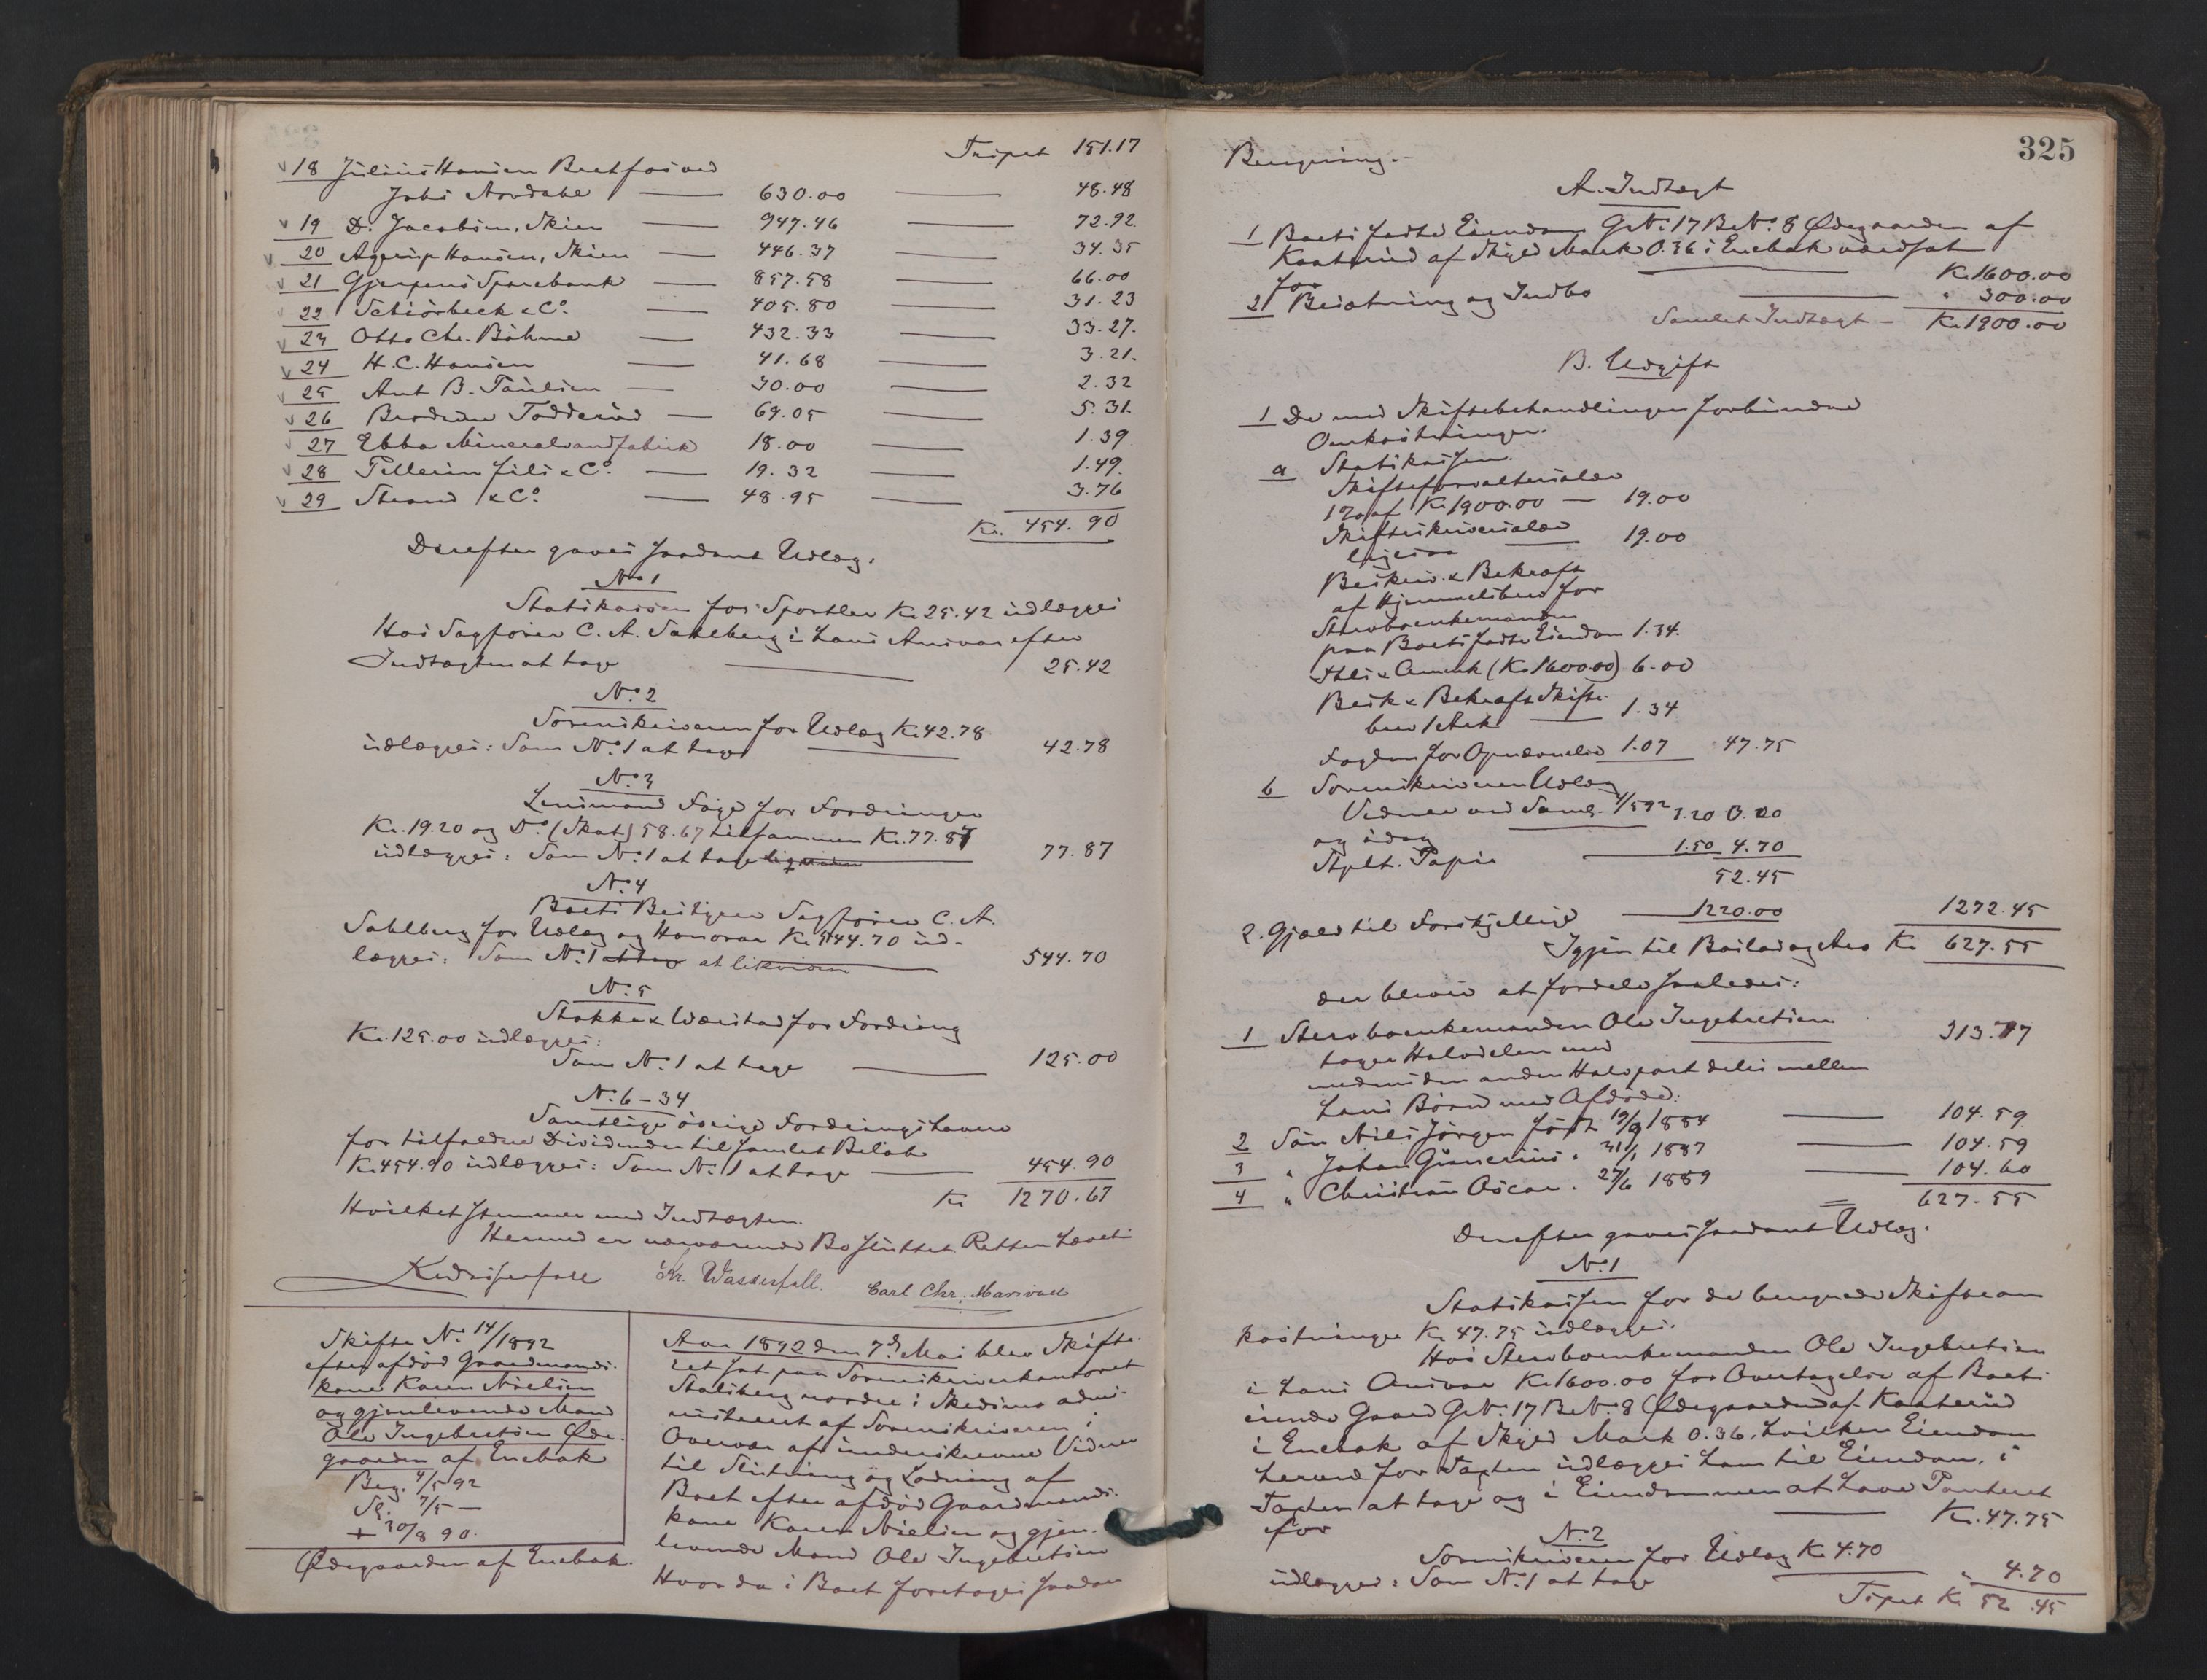 Tripet 151.17
18 Julius Hansen Buchfos ved
Jobs Nordahl — 630.00 — 48.48
19 D. Jacobsen, Skien — 947.46 — 72.92
20 Agerup Hansen, Skien — 446.37 — 34.35
21 Gjerpens Sparebank — 857.58 — 66.00
22 Schiörbeck & Co. — 405.80 — 31.23
23 Otto Chr. Böhme — 432.33 — 33.27.
24 H. C. Hansen — 41.68 — 3.21.
25 Ant B. Paulsen — 30.00 — 2.32
26 Brödrene Todderud — 69.05 — 5.31.
27 Ebba Mineralvandfabrik 18.00 — 1.39
28 Pellerin fils & Co. — 19.32 — 1.49.
29 Strand & Co. — 48.95 — 3.76
Kr. 454.90
Derefter gaves saadant Udlæg:
No. 1
Statskassen for Sportler Kr 25.42 udlægges
Hos Sagfører C. A. Sahlberg i hans Ansvar efter
Indtægten at tage — 25.42
No. 2
Sorenskriveren for Udlæg Kr 42.78
udlægges: Som No. 1 at tage — 42.78
No. 3
Lensmand Fage for Fordringer
Kr. 19.20 og Do. (Skat) 58.67 tilsammen Kr. 77.87
udlægges: Som No. 1 at tage — 77.87
No. 4
Boets Bestyrer Sagfører C. A.
Sahlberg for Udlæg og Honorar Kr 544.70 ud-
lægges: Som No. 1 at tage at likvidere — 544.70
No. 5
Stokke & Wærstad for Fordring
Kr. 125.00 udlægges:
Som No. 1 at tage — 125.00
No. 6-34
Samtlige øvrige Fordringshavere
for tilfaldne Dividender til samlet Beløb
Kr. 454.90 udlægges: Som No. 1 at tage — 454.90
Kr 1270.67
Hvilket stemmer med Indtægten.
Hermed er nærværende Bo sluttet Retten hævet
Kr. Wasserfall. Carl Chr. Marivold
Skifte No. 14/1892
efter afdød Gaardmands-
kone Karen Nielsen
og gjenlevende Mand
Ole Ingebretsen Øde-
gaarden af Enebak
Beg. 4/5 92
Sl. 7/5 —
+ 30/8 90.
Ødegaarden af Enebak.
Aar 1892 den 7de Mai blev Skifte-
ret sat paa Sorenskriverkontoret
Stalsberg nordre i Skedsmo admi-
nistreret af Sorenskriveren i
Overvær af underskrevne Vidner
til Slutning og Lodning af
Boet efter afdød Gaardmands-
kone Karen Nielsen og gjen-
levende Mand Ole Ingebretsen
Hvor da i Boet foretoges saadan
325
Beregning.-
A. Indtægt
1 Boets faste Eiendom G. No. 17 B. No. 8 Ødegaarden af
Kaaterud af Skyld Mark 0.36 i Enebak værdsat
for Kr. 1600.00
2 Besætning og Indbo — " 300.00
Samlet Indtægt — Kr. 1900.00
B. Udgift
1 De med Skiftebehandlingen forbundne
Omkostninger.
a Statskassen.
Skifteforvaltersalær
1% af Kr. 1900.00 — 19.00
Skifteskriversalær
ligesaa 19.00
Beskriv. & Bekræft
af Hjemmelsbrev for
Stervboenkemanden
paa Boets faste Eiendom 1.34.
Thl. & Anmrk (Kr. 1600.00) 6.00
Besk & Bekræft Skifte-
brev 1 Ark — 1.34
Fogden for Opnævnelse 1.07 47.75
b Sorenskriveren Udlæg
Vidner ved Saml. 4/5 92 3.20 0.00
og idag
Stplt. Papir — 1.50 4.70
52.45
2. Gjæld til Forskjellige — 1220.00 1272.45
Igjen til Boslod og Arv Kr 627.55
der bliver at fordele saaledes:
1 Stervboenkemanden Ole Ingebretsen
tager Halvdelen med — 313.77
medens den anden Halvpart deles mellem
hans Børn med Afdøde:
2 Søn Nils Jørgen født 19/9 1884 — 104.59
3 " Johan Ginerius " 31/1 1887 — 104.59
4 " Christian Oscar " 27/6 1889 — 104.60
627.55
Derefter gaves saadant Udlæg.
No. 1
Statskassen for de beregnede Skifteom
kostninger Kr. 47.75 udlægges.
Hos Stervboenkemanden Ole Ingebretsen
i hans Ansvar Kr. 1600.00 for Overtagelse af Boets
eiende Gaard G. No. 17 B. No. 8 Ødegaarden af Kaaterud
i Enebak af Skyld Mark 0.36, hvilken Eiendom
herved for Taxten udlægges ham til Eiendom, i
Taxten at tage og i Eiendommen at have Panteret
for — Kr. 47.75
No. 2
Sorenskriveren for Udlæg Kr 4.70
udlægges: Som No. 1 at tage " 4.70
Tripet Kr 52.45